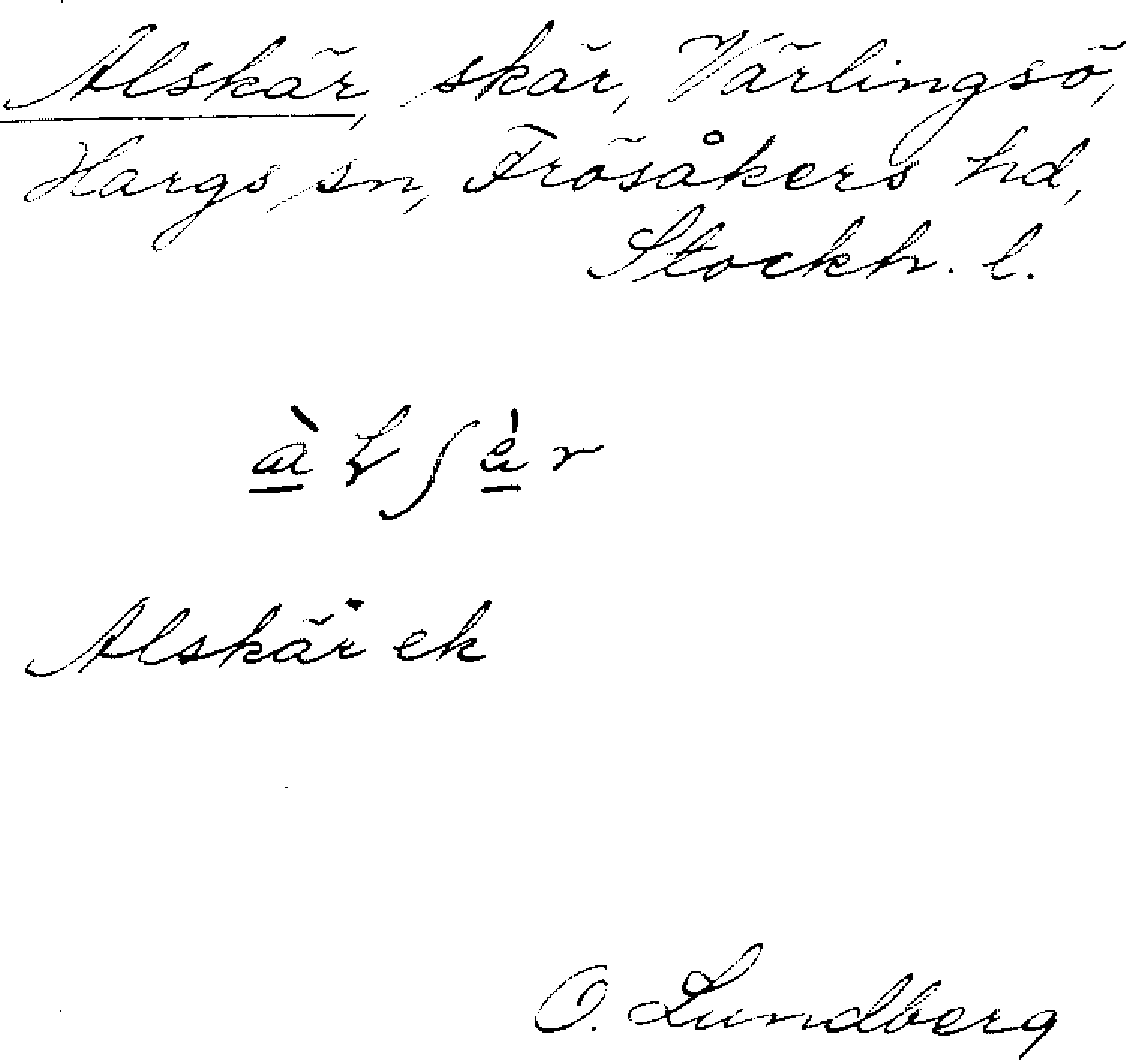 Alskär, skär, Värlingsö,
Hargs sn, Frösåkers hd,
Stockh. l.
Alskär ek
O. Lundberg